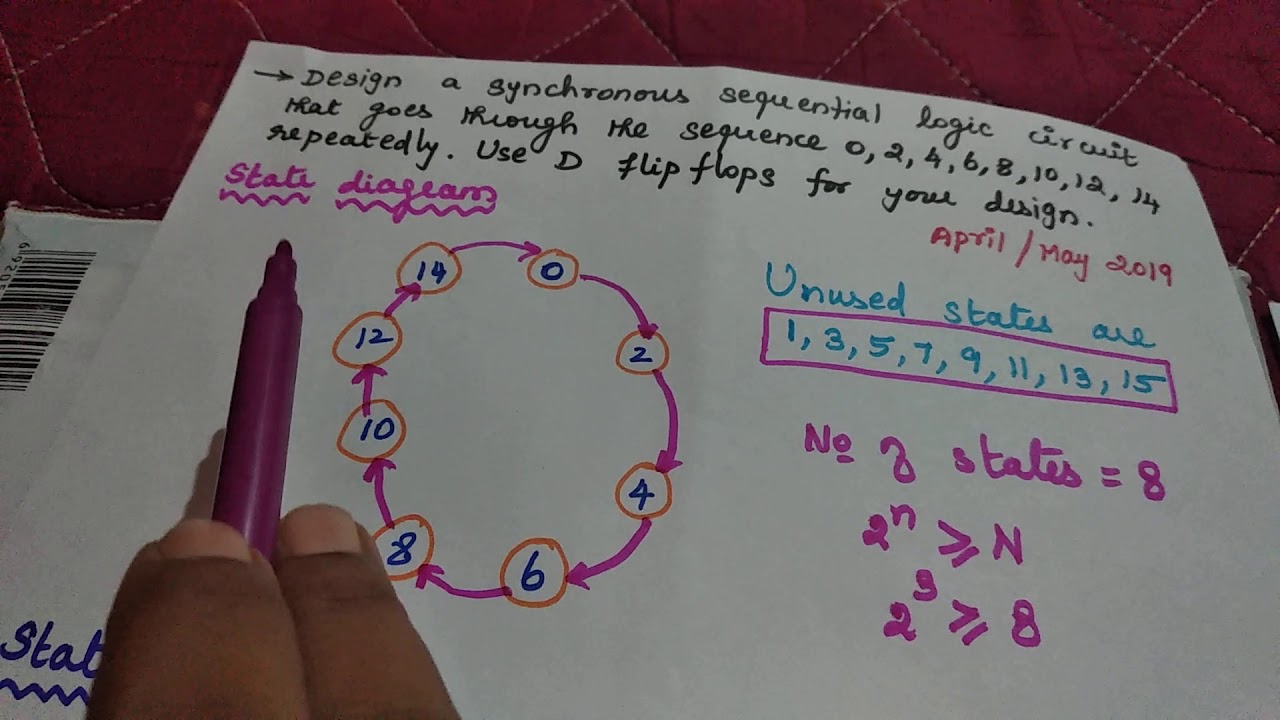 → Design a synchronous sequential logic circuit
that goes through the sequence 0, 2, 4, 6, 8, 10, 12, 14
repeatedly. Use D flip flops for your design.
April / May 2019
State diagram
14
0
12
2
10
4
8
6
Unused states are
1, 3, 5, 7, 9, 11, 13, 15
No of states = 8
2ⁿ ⩾ N
2³ ⩾ 8
Stat